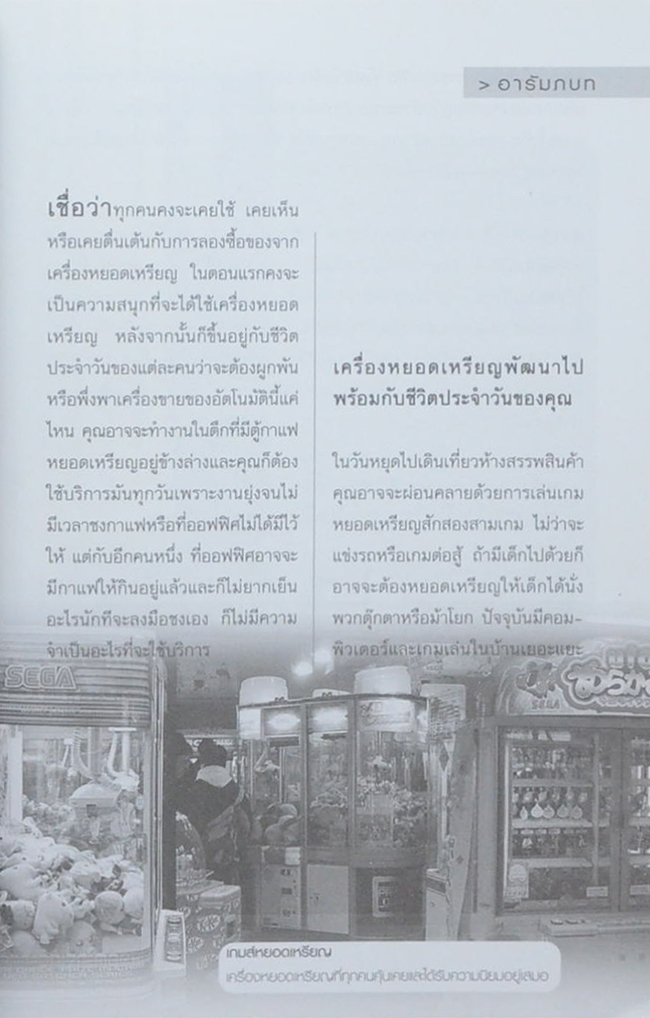 > อารัมภบท
เชื่อว่าทุกคนคงจะเคยใช้ เคยเห็น
หรือเคยตื่นเต้นกับการลองซื้อของจาก
เครื่องหยอดเหรียญ ในตอนแรกคงจะ
เป็นความสนุกที่จะได้ใช้เครื่องหยอด
เหรียญ หลังจากนั้นก็ขึ้นอยู่กับชีวิต
ประจำวันของแต่ละคนว่าจะต้องผูกพัน
หรือพึ่งพาเครื่องขายของอัตโนมัตินี้แค่
ไหน คุณอาจจะทำงานในตึกที่มีตู้กาแฟ
หยอดเหรียญอยู่ข้างล่างและคุณก็ต้อง
ใช้บริการมันทุกวันเพราะงานยุ่งจนไม่
มีเวลาชงกาแฟหรือที่ออฟฟิศไม่ได้มีไว้
ให้ แต่กับอีกคนหนึ่ง ที่ออฟฟิศอาจจะ
มีกาแฟให้กินอยู่แล้วและก็ไม่ยากเย็น
อะไรนักทีจะลงมือชงเอง ก็ไม่มีความ
จำเป็นอะไรที่จะใช้บริการ
เครื่องหยอดเหรียญพัฒนาไป
พร้อมกับชีวิตประจำวันของคุณ
ในวันหยุดไปเดินเที่ยวห้างสรรพสินค้า
คุณอาจจะผ่อนคลายด้วยการเล่นเกม
หยอดเหรียญสักสองสามเกม ไม่ว่าจะ
แข่งรถหรือเกมต่อสู้ ถ้ามีเด็กไปด้วยก็
อาจจะต้องหยอดเหรียญให้เด็กได้นั่ง
พวกตุ๊กตาหรือม้าโยก ปัจจุบันมีคอม-
พิวเตอร์และเกมเล่นในบ้านเยอะแยะ
SEGA
SEGA
KitKat
เกมส์หยอดเหรียญ
เครื่องหยอดเหรียญที่ทุกคนคุ้นเคยและได้รับความนิยมอยู่เสมอ